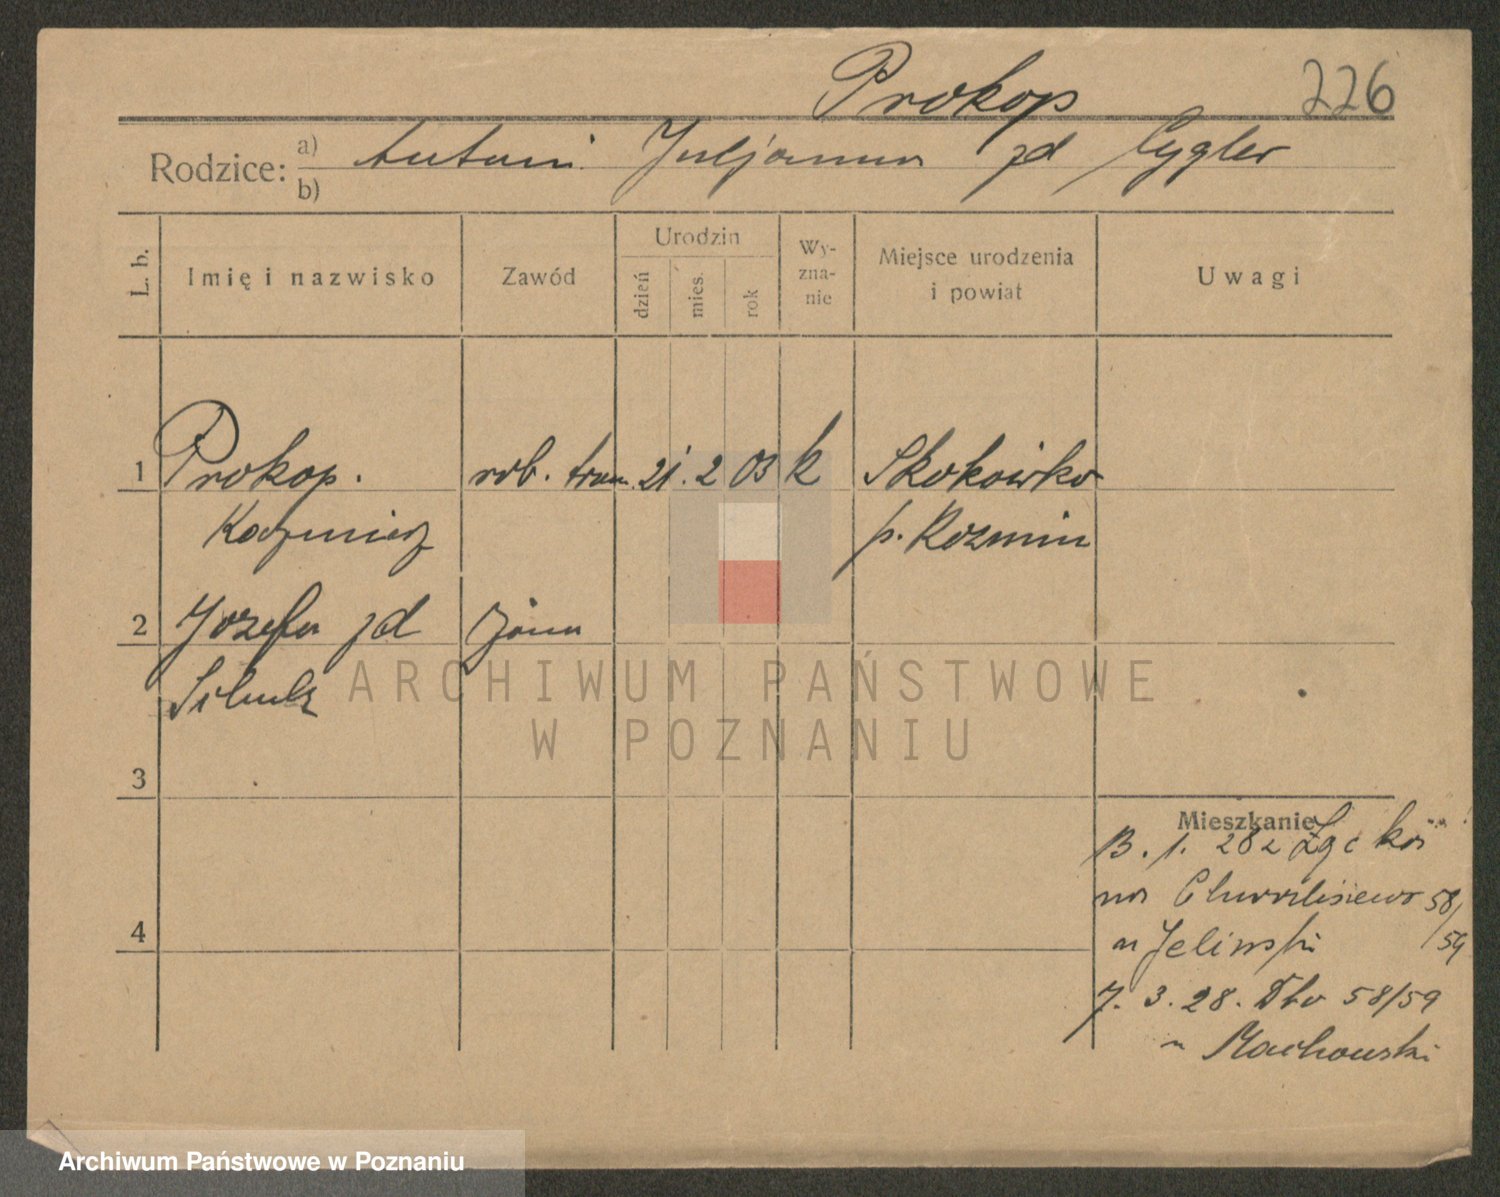 Prokop 226
Rodzice: a) Antoni Juljanna zd Cygler
b)
L. b. Imię i nazwisko Zawód Urodzin dzień mies. rok Wy-zna-nie Miejsce urodzenia i powiat Uwagi
1 Prokop. rob. tram. 21. 2 03 k Skokówko
Kazimierz p. Kozmin
2 Józefa zd żona
ARCHIWUM PAŃSTWOWE
W POZNANIU
3
Mieszkanie
B. 1. 28 z
na Chwaliszewo 58/59
4
u Jeliński
7. 3. 28. Dto 58/59
u Machowski
Archiwum Państwowe w Poznaniu